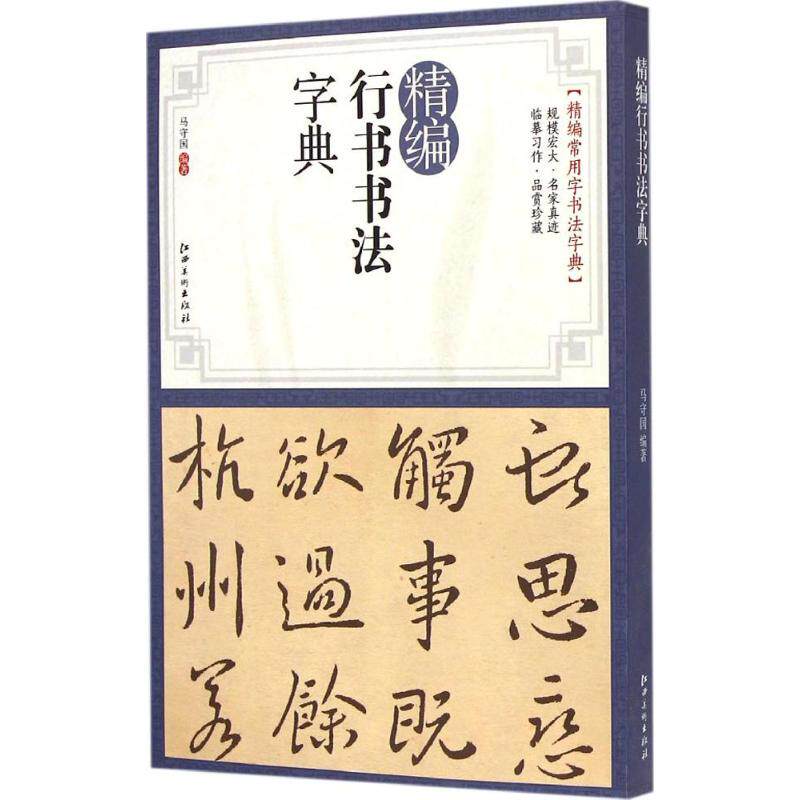 【精编常用字书法字典】
规模宏大·名家真迹
临摹习作·品赏珍藏
精编
行书书法
字典
马守国 编著
江西美術出版社
思恋
觸事既
欲過餘
杭州
精编行书书法字典
马守国 编著
江西美術出版社